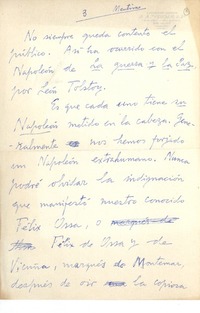 8
No siempre queda contento el
público. Así ha ocurrido con el
Napoleón de La guerra y la paz
por León Tolstoy.
Es que cada uno tiene un
Napoleón metido en la cabeza. Gene-
ralmente nos hemos forjado
un Napoleón extrahumano. Nunca
podré olvidar la indignación
que manifestó nuestro conocido
Félix Ossa, o marqués de
Félix de Ossa y de
Vicuña, marqués de Montemar,
después de oír la copiosa